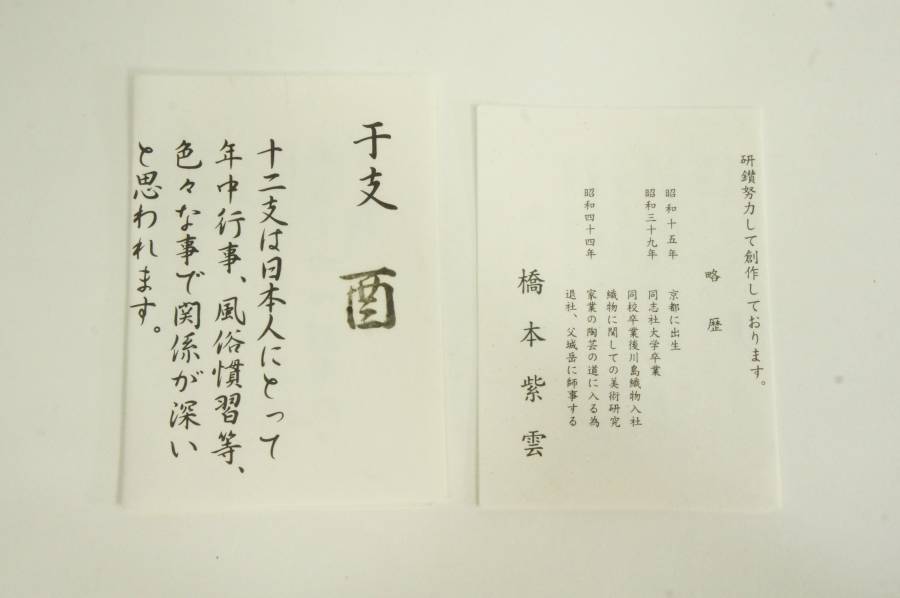 干支 酉
十二支は日本人にとって
年中行事、風俗慣習等、
色々な事で関係が深い
と思われます。
研鑽努力して創作しております。
略歴
昭和十五年 京都に出生
昭和三十九年 同志社大学卒業
同校卒業後川島織物入社
織物に関しての美術研究
昭和四十四年 家業の陶芸の道に入る為
退社、父城岳に師事する
橋本紫雲